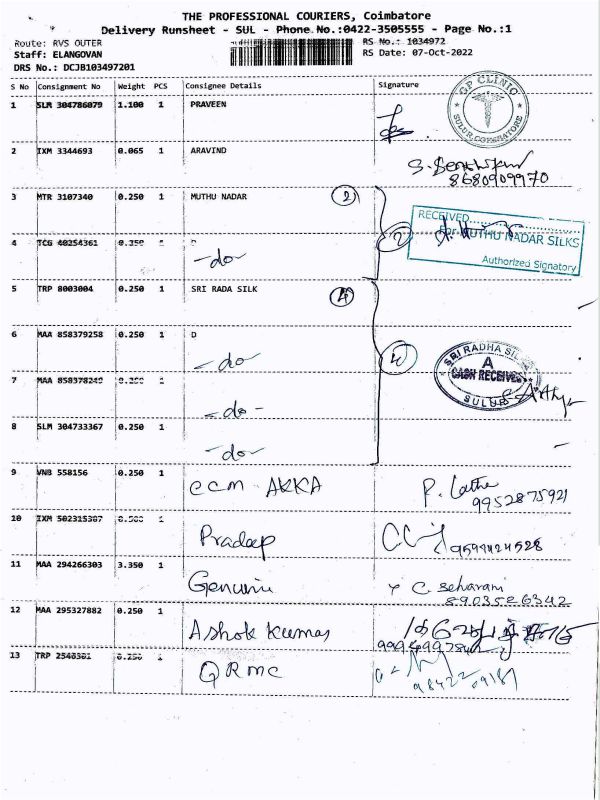 THE PROFESSIONAL COURIERS, Coimbatore
Delivery Runsheet - SUL - Phone No.:0422-3505555 - Page No.:1
Route: RVS OUTER
RS No.: 1034972
Staff: ELANGOVAN
RS Date: 07-Oct-2022
DRS No.: DCJB103497201
S No Consignment No Weight PCS Consignee Details Signature
1 SLM 304786079 1.100 1 PRAVEEN
GP CLINIC
SULUR, COIMBATORE
2 IXM 3344693 0.065 1 ARAVIND
8680909970
3 MTR 3107340 0.250 1 MUTHU NADAR 2
RECEIVED
For MUTHU NADAR SILKS
Authorized Signatory
4 TCG 40254361 0.350 1 D
-do- 2
5 TRP 8003004 0.250 1 SRI RADA SILK 4
6 MAA 858379258 0.250 1 D
-do- 4
SRI RADHA SILK
A
CASH RECEIVED
SULUR
7 MAA 858378249 0.250 1
-do-
8 SLM 304733367 0.250 1
-do-
9 VNB 558156 0.250 1 CCM AKKA P. Latha
9952875921
10 IXM 502315387 0.500 1
Pradeep 9594424528
11 MAA 294266303 3.350 1
Genuine
8903526342
12 MAA 295327882 0.250 1
Ashok Kumar
13 TRP 2548381 0.250 1
QRMC